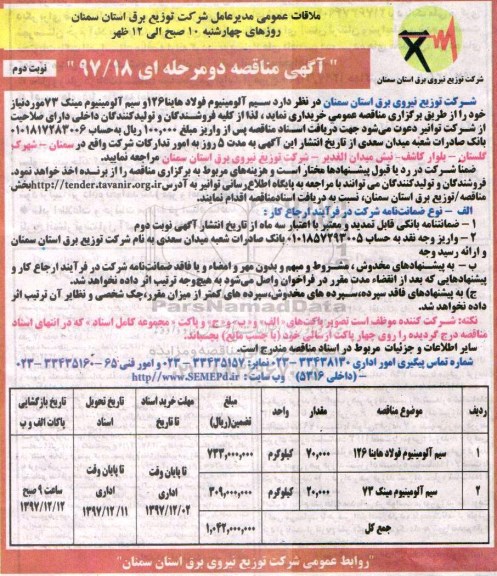 ملاقات عمومی مدیرعامل شرکت توزیع برق استان سمنان
روزهای چهارشنبه ۱۰ صبح الی ۱۲ ظهر
شرکت توزیع نیروی برق استان سمنان
" آگهی مناقصه دومرحله ای ۹۷/۱۸ "
نوبت دوم
شرکت توزیع نیروی برق استان سمنان در نظر دارد سیم آلومینیوم فولاد هاینا۱۲۶و سیم آلومینیوم مینک ۷۳موردنیاز
خود را از طریق برگزاری مناقصه عمومی خریداری نماید ، لذا از کلیه فروشندگان و تولیدکنندگان داخلی دارای صلاحیت
از شرکت توانیر دعوت می‌شود جهت دریافت اسناد مناقصه پس از واریز مبلغ ۱۰۰,۰۰۰ ریال به‌حساب ۰۱۰۱۸۱۷۲۸۳۰۰۶
بانک صادرات شعبه میدان سعدی از تاریخ انتشار این آگهی به مدت ۵ روز به امور تدارکات شرکت واقع در سمنان – شهرک
گلستان – بلوار کاشف- نبش میدان الغدیر – شرکت توزیع نیروی برق استان سمنان مراجعه نمایید.
ضمنا شرکت در رد یا قبول پیشنهادها مختار است و هزینه‌های مربوط به برگزاری مناقصه را از برنده اخذ خواهد نمود.
فروشندگان و تولیدکنندگان می توانند با مراجعه به پایگاه اطلاع‌رسانی توانیر به آدرس http://tender.tavanir.org.irبخش
مناقصه/توزیع برق استان سمنان، نسبت به دریافت اسنادمناقصه اقدام نمایند.
الف – نوع ضمانت‌نامه شرکت در فرآیند ارجاع کار :
۱ – ضمانتنامه بانکی قابل تمدید و معتبر با اعتبار سه ماه از تاریخ انتشار آگهی نوبت دوم
۲ – واریز وجه نقد به حساب ۰۱۰۱۸۵۷۲۹۳۰۰۵ بانک صادرات شعبه میدان سعدی به نام شرکت توزیع نیروی برق استان سمنان
و ارائه رسید وجه
ب – به پیشنهادهای مخدوش ، مشروط و مبهم و بدون مهر و امضاء و یا فاقد ضمانت‌نامه شرکت در فرآیند ارجاع کار و
پیشنهادهایی که بعد از انقضاء مدت مقرر در فراخوان واصل می‌شود به هیچ‌وجه ترتیب اثر داده نخواهد شد.
ج) به پیشنهادهای فاقد سپرده،سپرده های مخدوش،سپرده های کمتر از میزان مقرر،چک شخصی و نظایر آن ترتیب اثر
داده نخواهد شد.
نکته: شرکت کننده موظف است تصویر پاکت‌های - الف- و -ب- و-ج- و پاکت - مجموعه کامل اسناد - که در انتهای اسناد
مناقصه درج گردیده را روی چهار پاکت ارسالی خود (با چسب مایع) بچسباند.
سایر اطلاعات و جزئیات مربوط در اسناد مناقصه مندرج است.
شماره تماس پیگیری امور اداری ۳۳۴۳۸۱۳۰-۰۲۳ نمابر: ۳۳۴۳۵۱۵۷-۰۲۳ و امور فنی ۶۵ -۳۳۴۳۵۱۶۰-۰۲۳
- (داخلی ۵۳۱۶) وب سایت : http://www.SEMEPd.ir
ردیف موضوع مناقصه مقدار واحد مبلغ تضمین(ریال) مهلت خرید اسناد تا تاریخ تاریخ تحویل اسناد تاریخ بازگشایی پاکات الف و ب
۱ سیم آلومینیوم فولاد هاینا ۱۲۶ ۷۰,۰۰۰ کیلوگرم ۷۳۳,۰۰۰,۰۰۰ تا پایان وقت اداری ۱۳۹۷/۱۲/۰۲ تا پایان وقت اداری ۱۳۹۷/۱۲/۱۱ ساعت ۹ صبح ۱۳۹۷/۱۲/۱۲
۲ سیم آلومینیوم مینک ۷۳ ۲۰,۰۰۰ کیلوگرم ۳۰۹,۰۰۰,۰۰۰
جمع کل ۱,۰۴۲,۰۰۰,۰۰۰
"روابط عمومی شرکت توزیع نیروی برق استان سمنان"
ParsNamadData